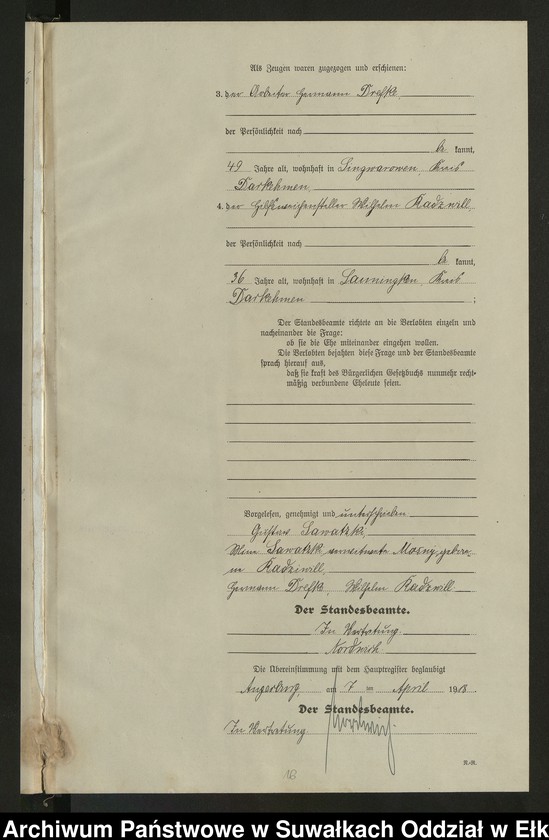 Als Zeugen waren zugezogen und erschienen:
3. der Arbeiter Hermann Drefke
der Persönlichkeit nach
be kannt,
49 Jahre alt, wohnhaft in Lingwarowen Kreis
Darkehmen,
4. der Hilfsweichensteller Wilhelm Radzwill,
der Persönlichkeit nach
be kannt,
36 Jahre alt, wohnhaft in Launingken Kreis
Darkehmen ;
Der Standesbeamte richtete an die Verlobten einzeln und
nacheinander die Frage:
ob sie die Ehe miteinander eingehen wollen.
Die Verlobten bejahten diese Frage und der Standesbeamte
sprach hierauf aus,
daß sie kraft des Bürgerlichen Gesetzbuchs nunmehr recht-
mäßig verbundene Eheleute seien.
Vorgelesen, genehmigt und unterschrieben
Gustav Sawatzki,
Sawatzki verwitwete Mosny, gebore-
ne Radziwill,
Hermann Drefke, Wilhelm Radzwill
Der Standesbeamte.
In Vertretung
Die Übereinstimmung mit dem Hauptregister beglaubigt
Angerburg, am 7 ten April 1913.
Der Standesbeamte.
In Vertretung.
R.-R.
Archiwum Państwowe w Suwałkach Oddział w Ełk